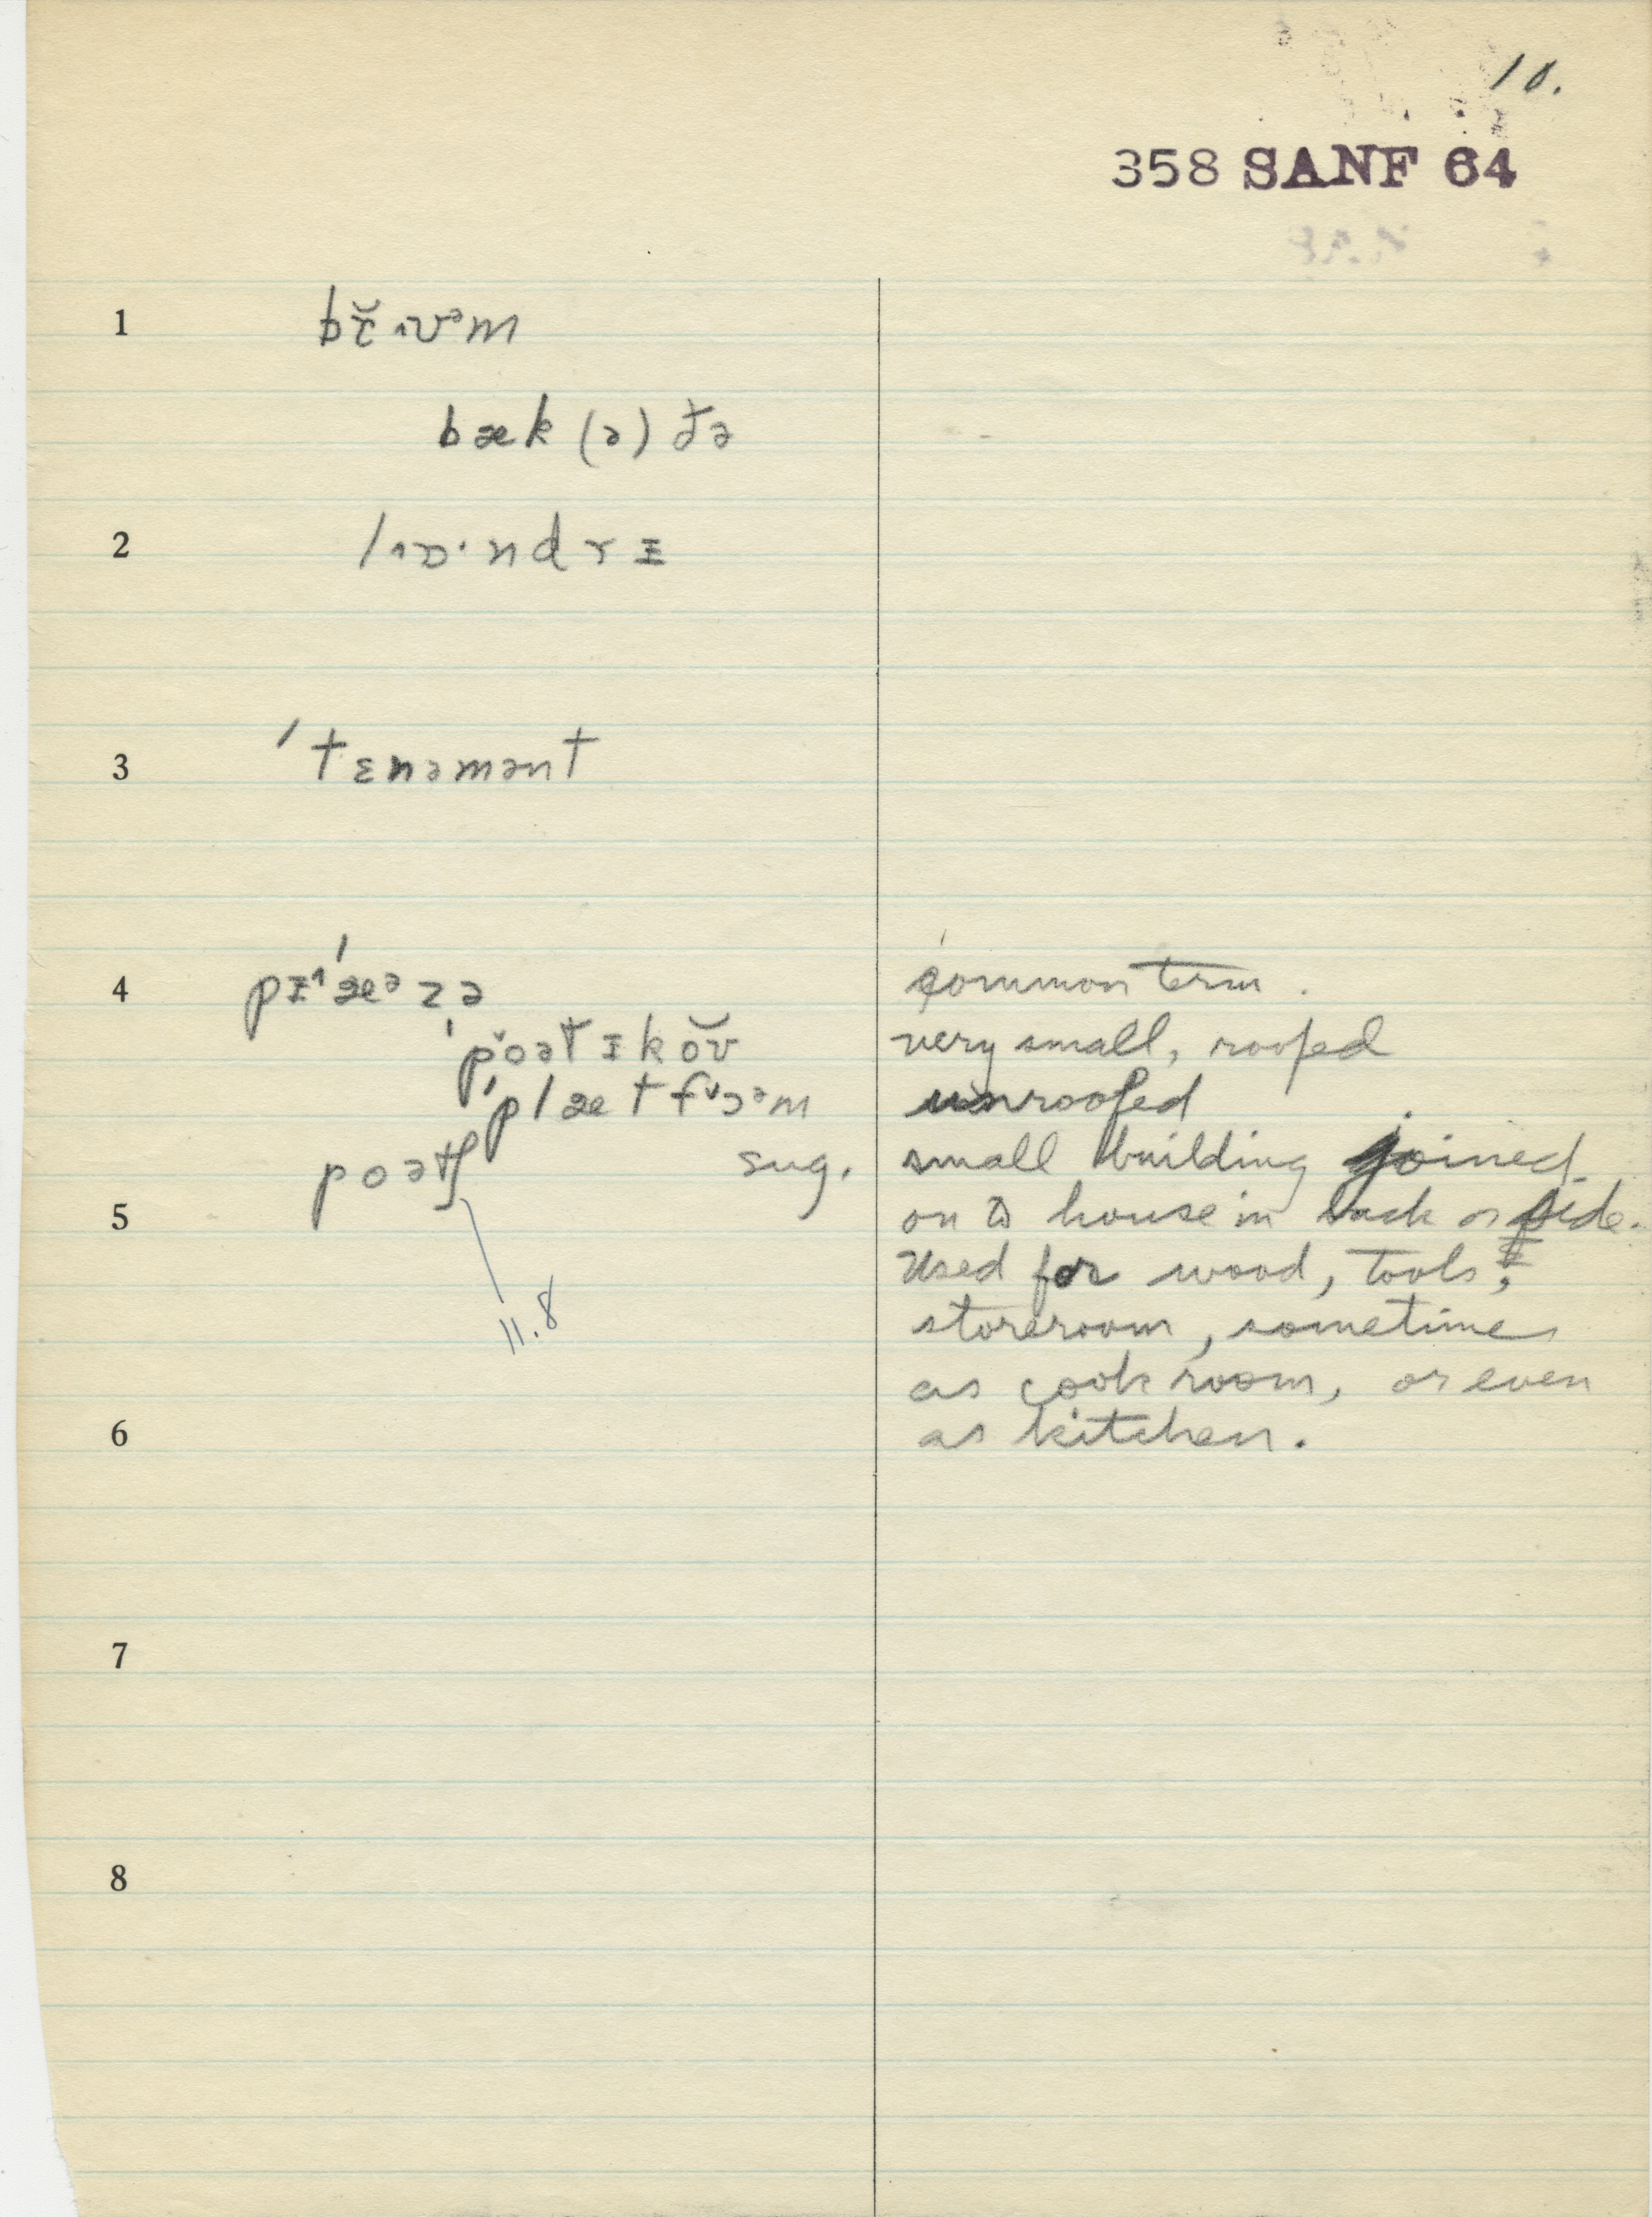 10.
358 SANF 64
1
bæk (ə) ðə
2
3 ˈtɛnəmənt
4 common term.
ˈpoətɪkŏʊ very small, roofed
unroofed
poətʃ sug. small building joined
5 on to house in back or side.
Used for wood, tools,
11.8 storeroom, sometimes
as cook room, or even
6 as kitchen.
7
8